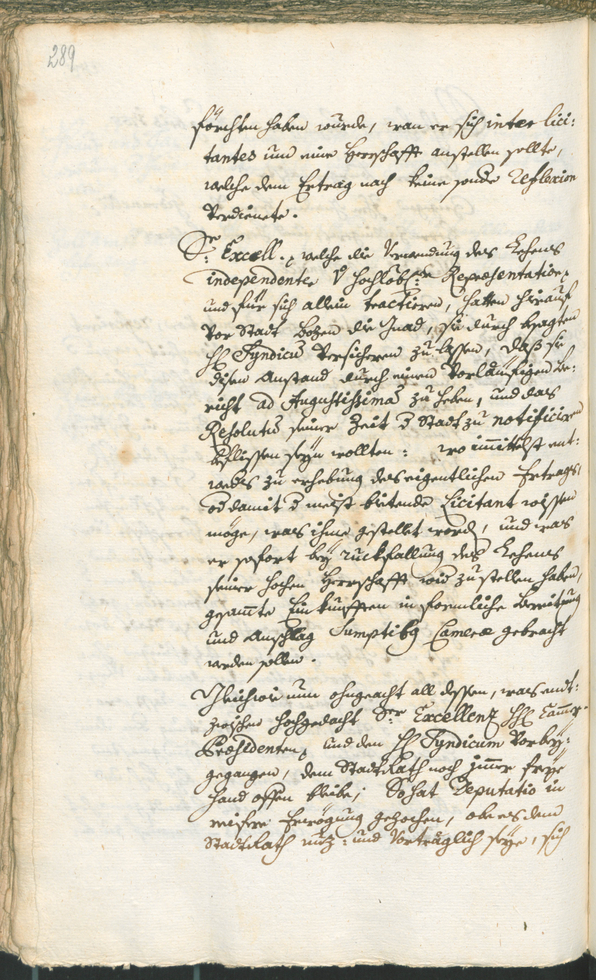 289
förchten haben wurde, wan er sich inter lici:
tantes um eine Herrschafft anstellen sollte,
welche dem Ertrag nach keine sonde Reflexion
Verdienete.
Sr: Excell., welche die Verwendung des Lehens
independenter V hochlöbl:r Repræsentation,
und für sich allein tractieren, hatten hierauf
Vor Stadt Bozen die Gnad, sie durch besagten
H: Syndicu Versicheren zu lassen, daß sie
disen Anstand durch einen Vorläufigen Be:
richt ad Augustissima zu heben, und das
Resolutu seiner Zeit d Stadt zu notificiren
beflissen seyn wollten: wo immittelst ent:
weders zu erhebung des eigentlichen Ertrags
od damit d meist bietende Licitant wissen
möge, was ihme gestellet werd, und was
er sofort bey ruckfallung des Lehens
seiner hohen Herrschafft wid zustellen haben,
gesamte Einkünfften in formliche Bereitung
und Anschlag Sumptibg Cameræ gebracht
werden sollen.
Gleichwie nun ohngeacht all dessen, was entt:
zwischen Hochgedacht Sr Excellenz H: Cammer
Præsidenten, und dem H: Syndicum Vorbey:
gegangen, dem Stadt Rath noch immer freye
Hand offen bleibe; So hat Deputatio in
reifere Erwögung gezochen, ob es dem
Stadt Rath nutz: und Vorträglich seye, sich